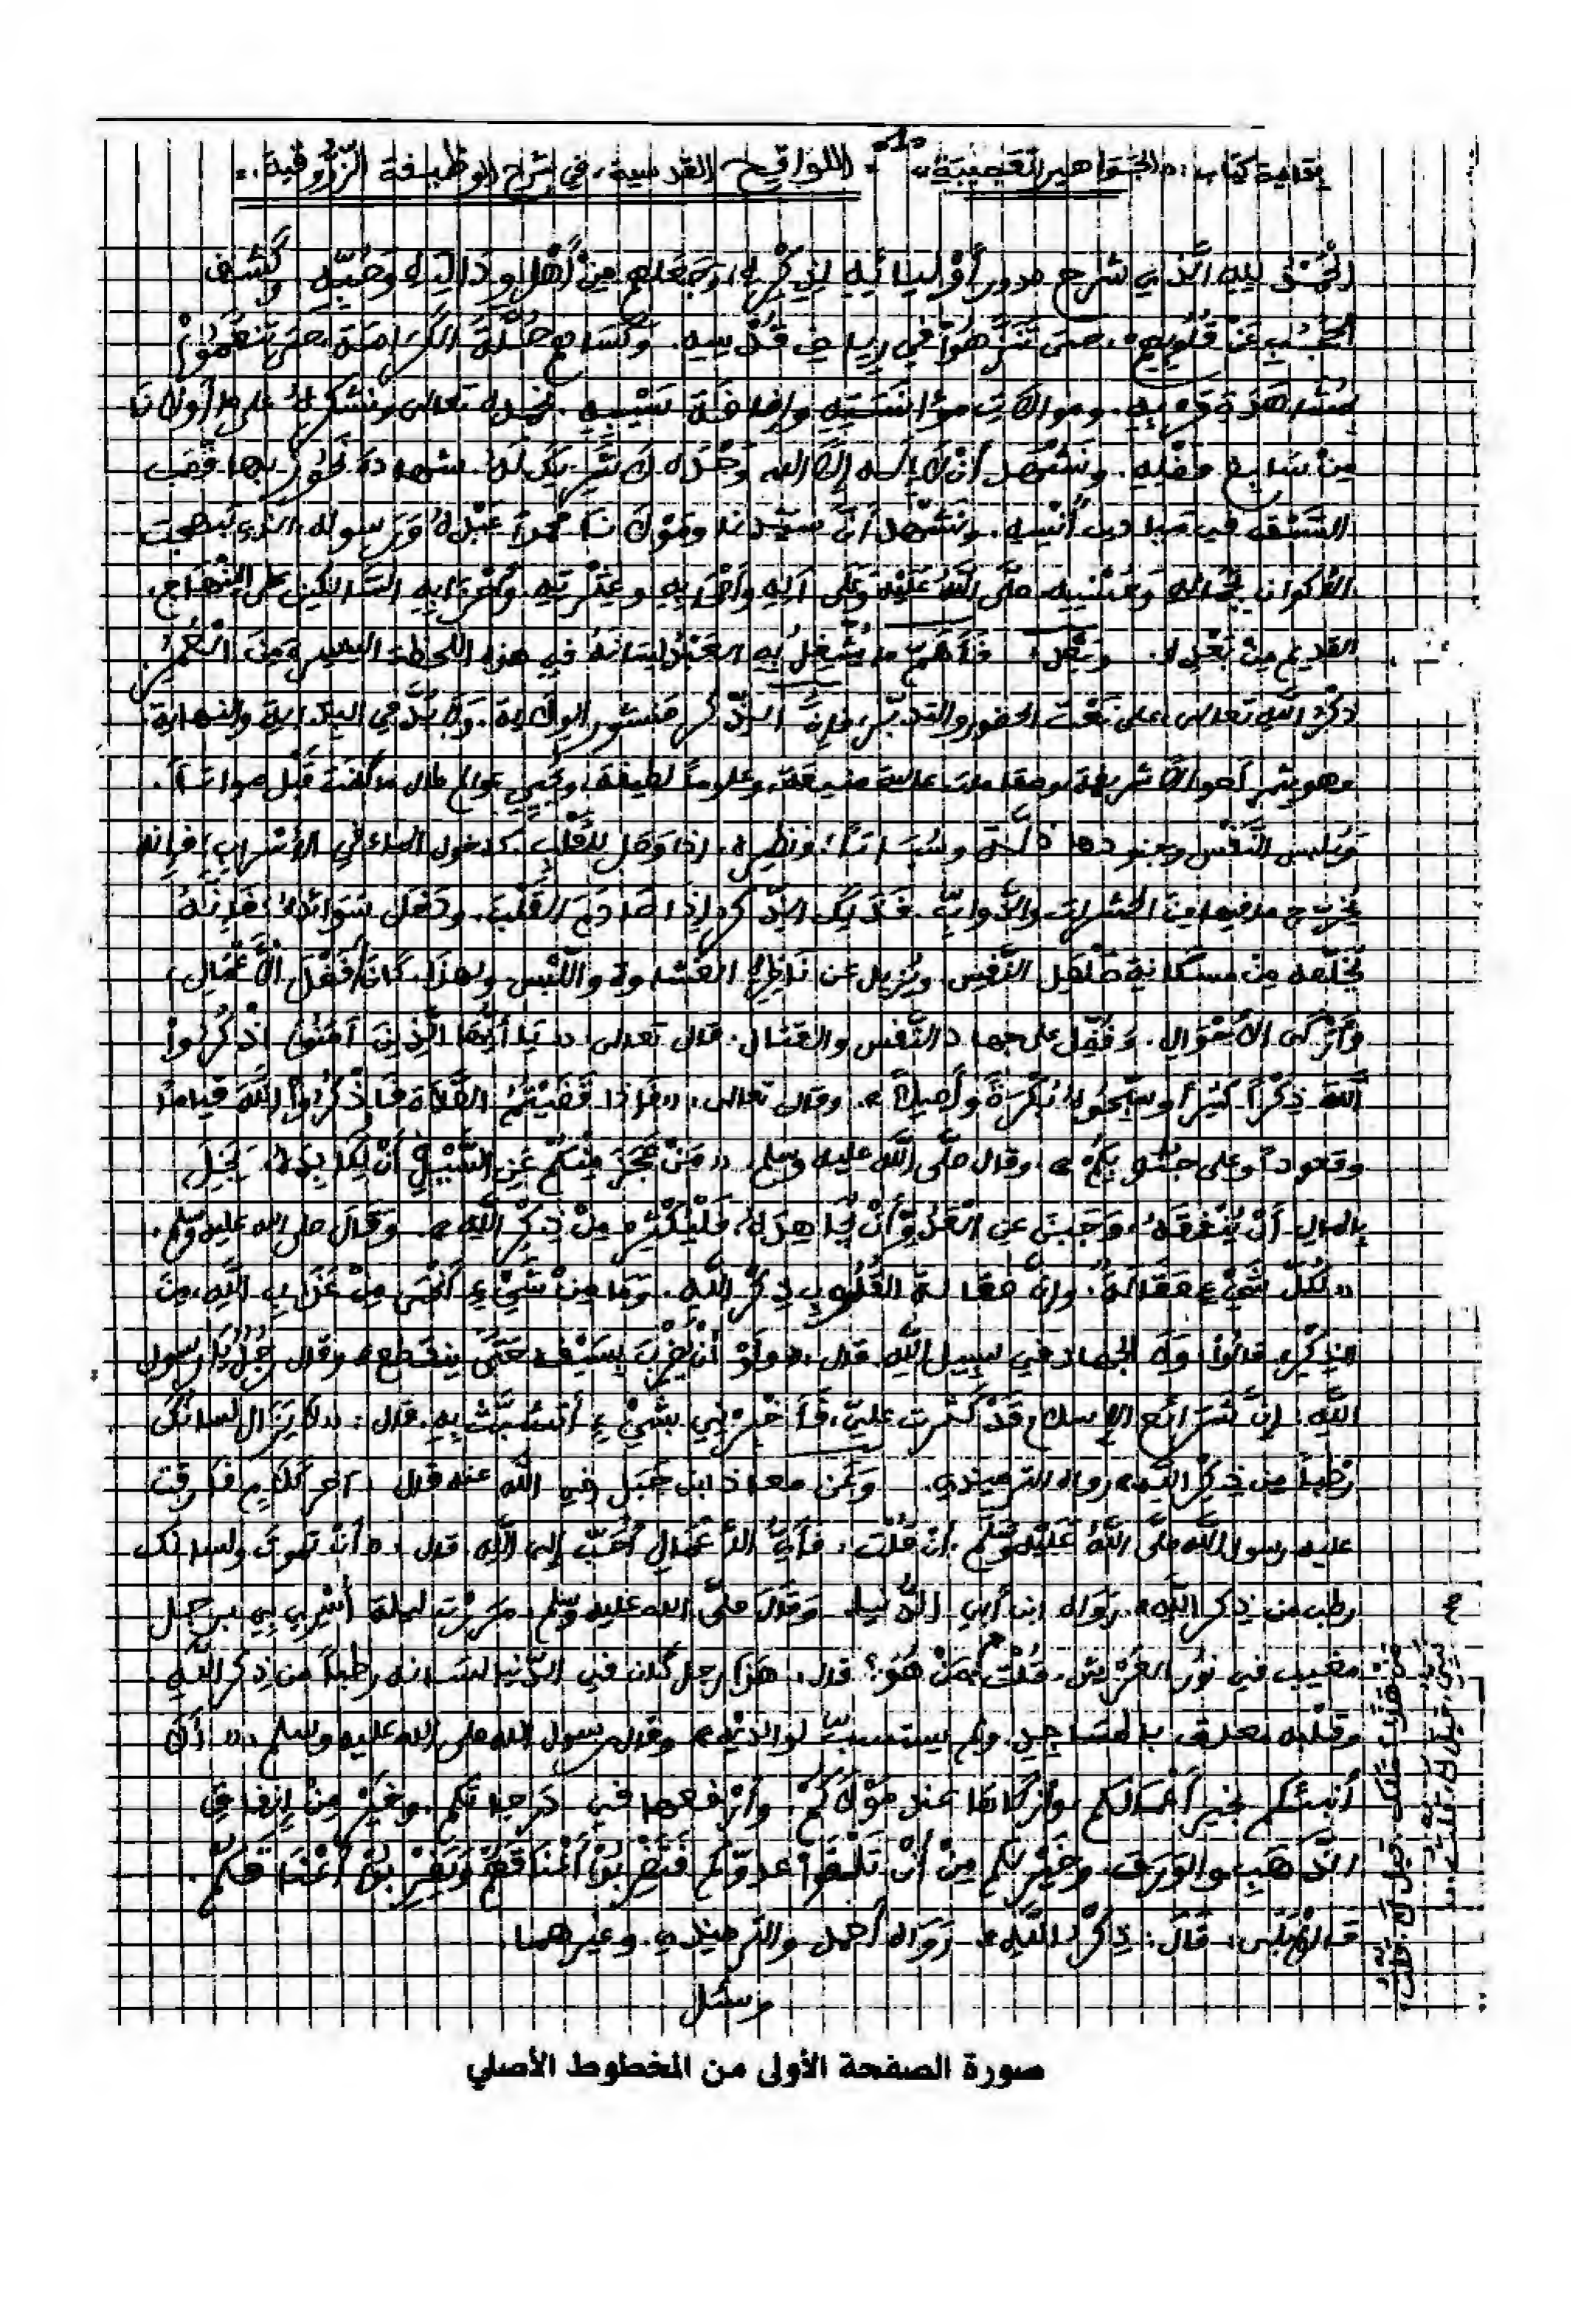 -1-
بقلمية كتاب: «الجواهر العجيبة» «اللواقح القدسية، في شرح الوظيفة الزروقية»
الحمد لله الذي شرح صدور أوليائه لذكره، وجعلهم من أهل ودّ وحبّه وكشف
الحجب عن قلوبهم، حتى تنزهوا في رياض قدسه. وكساهم حلّة الكرامة، حتى تنعموا
بمشاهدة قربه. ومؤانسته وإضافة سيبه. نحمده تعالى ونشكره على ما أولانا
من سابغ فضله. ونشهد أن لا إله إلا الله وحده لا شريك له. شهادة نحوز بها قصب
السبق في ميادين أنسه. ونشهد أن سيدنا ومولانا محمداً عبده ورسوله، الذي
الأكوان بجماله وحسنه. صلى الله عليه وعلى آله وأصحابه وعترته. وأحزابه السالكين على المنهاج،
القديم من بعده. وبعد، فأهم ما يشغل به العبد لسانه في هذه اللحظة اليسيرة من العمر،
ذكر الله تعالى، على نعت الحضور والتدبر، فإن الذكر منشور الولاية. ولا بدّ في البداية والنهاية،
وهو يثمر أحوالاً شريفة، ومقامات عالية منيفة، وعلوماً لطيفة، ويحيي عوالم طال ما كانت قبل مواتاً.
ويلبس النفس وجنودها ذلّة وسُباتاً، ونظيره، إذا وصل للقلب، كدخول الماء في الأسراب، فإنه
يخرج ما فيها من الحشرات والدواب. فكذلك الذكر إذا صادم القلب، ودخل سويداءه، فإنه
يخلصه من مساكنة صلصل النفس. ويزيل عن ناظره الغشاوة واللبس ولهذا، كان أفضل الأعمال،
وأزكى الأحوال. وفُضّل على جهاد النفس والقتال. قال تعالى: «يا أيها الذين آمنوا اذكروا
الله ذكراً كثيراً وسبّحوه بكرة وأصيلاً». وقال تعالى: «فإذا قضيتم الصلاة فاذكروا الله قياماً
وقعوداً وعلى جنوبكم». وقال صلّى الله عليه وسلم: «من عجز منكم عن الليل أن يكابده، وبخل
بالمال أن ينفقه، وجبن عن العدوّ أن يجاهده، فليكثر من ذكر الله». وقال صلى الله عليه وسلم:
«لكل شيء صقالة، وإن صقالة القلوب ذكر الله. وما من شيء أنجى من عذاب الله، من
الذكر، قالوا: ولا الجهاد في سبيل الله. قال: «ولو أن يضرب بسيفه حتى ينقطع» وقال رجل يا رسول
الله: إنّ شرائع الإسلام قد كثرت عليّ، فأخبرني بشيء أتشبّث به. قال: «لا يزال لسانك
رطباً من ذكر الله» رواه الترميذي. وعن معاذ ابن جبل رضي الله عنه قال: آخر كلام فارقت
عليه رسول الله صلّى الله عليه وسلّم، أن قلت، فأي الأعمال أحبّ إلى الله قال: «أن تموت ولسانك
رطب من ذكر الله». رواه ابن أبي الدنيا. وقال صلّى الله عليه وسلم: مررت ليلة أسري بي برجل
مغيب في نور العرش. قلت من هو؟ قال: هذا رجل كان في الدنيا لسانه رطباً من ذكر الله.
وقلبه معلق بالمساجد، ولم يستسب لوالديه» وقال رسول الله صلى الله عليه وسلم: «ألا
أنبئكم بخير أعمالكم، وأزكاها عند مولاكم. وأرفعها في درجاتكم. وخير من إنفاق
الذهب والورق، وخير لكم من أن تلقوا عدوّكم فتضربوا أعناقهم ويضربوا أعناقكم.
قالوا بلى، قال: ذكر الله». رواه أحمد والترميذي. وغيرهما.
وسئل
صورة الصفحة الأولى من المخطوط الأصلي